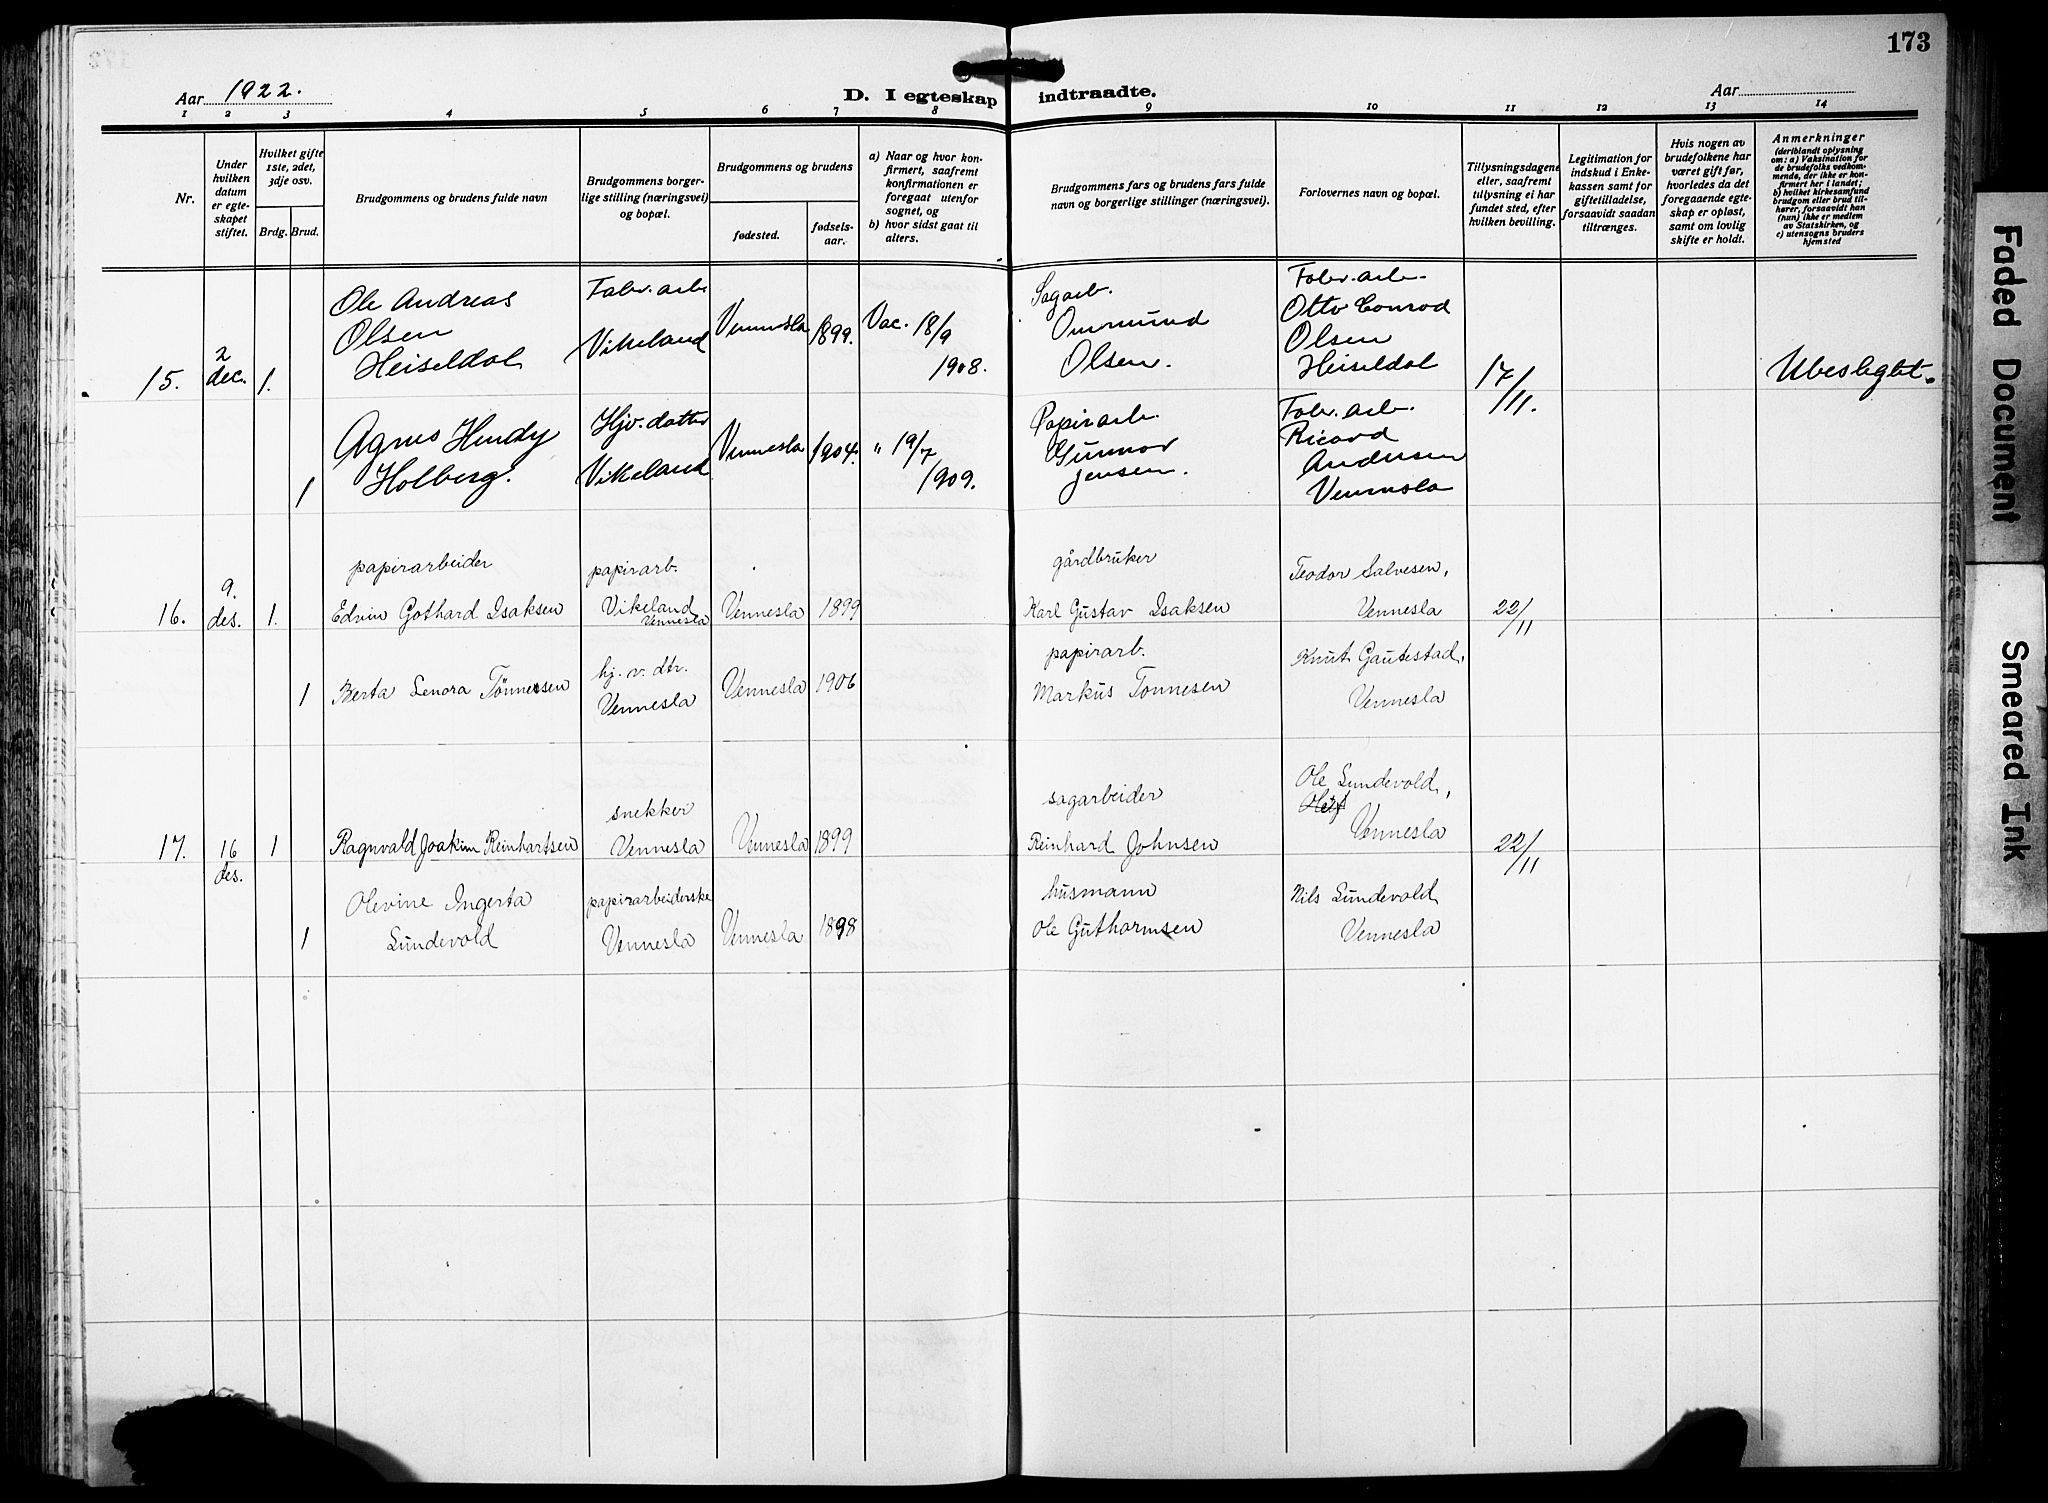 173
Aar 1922.
D. I egteskap indtraadte.
Aar
1 2 3 4 5 6 7 8 9 10 11 12 13 14
Nr.
Under
hvilken
datum
er egte-
skapet
stiftet.
Hvilket gifte
1ste, 2det,
3dje osv.
Brdg. Brud.
Brudgommens og brudens fulde navn
Brudgommens borger-
lige stilling (næringsvei)
og bopæl.
Brudgommens og brudens
fødested.
fødsels-
aar.
a) Naar og hvor kon-
firmert, saafremt
konfirmationen er
foregaat utenfor
sognet, og
b) hvor sidst gaat til
alters.
Brudgommens fars og brudens fars fulde
navn og borgerlige stillinger (næringsvei).
Forlovernes navn og bopæl.
Tillysningsdagene
eller, saafremt
tillysning ei har
fundet sted, efter
hvilken bevilling.
Legitimation for
indskud i Enke-
kassen samt for
giftetilladelse,
forsaavidt saadan
tiltrænges.
Hvis nogen av
brudefolkene har
været gift før,
hvorledes da det
foregaaende egte-
skap er opløst,
samt om lovlig
skifte er holdt.
Anmerkninger
(deriblandt oplysning
om: a) Vaksination for
de brudefolks vedkom-
mende, der ikke er kon-
firmert her i landet;
b) hvilket kirkesamfund
brudgom eller brud til-
hører, forsaavidt han
(hun) ikke er medlem
av Statskirken, og
c) utensogns bruders
hjemsted
15.
2
dec.
1.
Ole Andreas
Olsen
Heiseldal
Fabr. arb
Vikeland
Vennesla
1899.
Vac. 18/9
1908.
Sagarb.
Ommund
Olsen.
Fabr. arb.
Otto Conrad
Olsen
Heiseldal
17/11.
Ubeslegtet.
1
Agnes Hendy
Holberg.
Hjv. datter
Vikeland
Vennesla
1904.
" 19/7
1909.
Papirarb.
Gunnar
Jensen.
Fabr. arb.
Ricard
Andersen
Vennesla
16.
9.
des.
1.
papirarbeider
Edvin Gothard Isaksen
papirarb.
Vikeland
Vennesla
Vennesla
1899
gårdbruker
Karl Gustav Isaksen
Teodor Salvesen,
Vennesla
22/11
1
Berta Lenora Tönnesen
hj. v. dtr.
Vennesla
Vennesla
1906
papirarb.
Markus Tonnesen
Knut Gautestad,
Vennesla
17.
16
des.
1
Ragnvald Joakim Reinhartsen
snekker
Vennesla
Vennesla
1899
sagarbeider
Reinhard Johnsen
Ole Lundevold,
Vennesla
22/11
1
Olevine Ingerta
Lundevold
papirarbeiderske
Vennesla
Vennesla
1898
husmann
Ole Guthormsen
Nils Lundevold
Vennesla
Faded Document
Smeared Ink